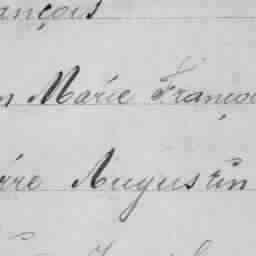 ançois
n Marie Franço
rre Augustin